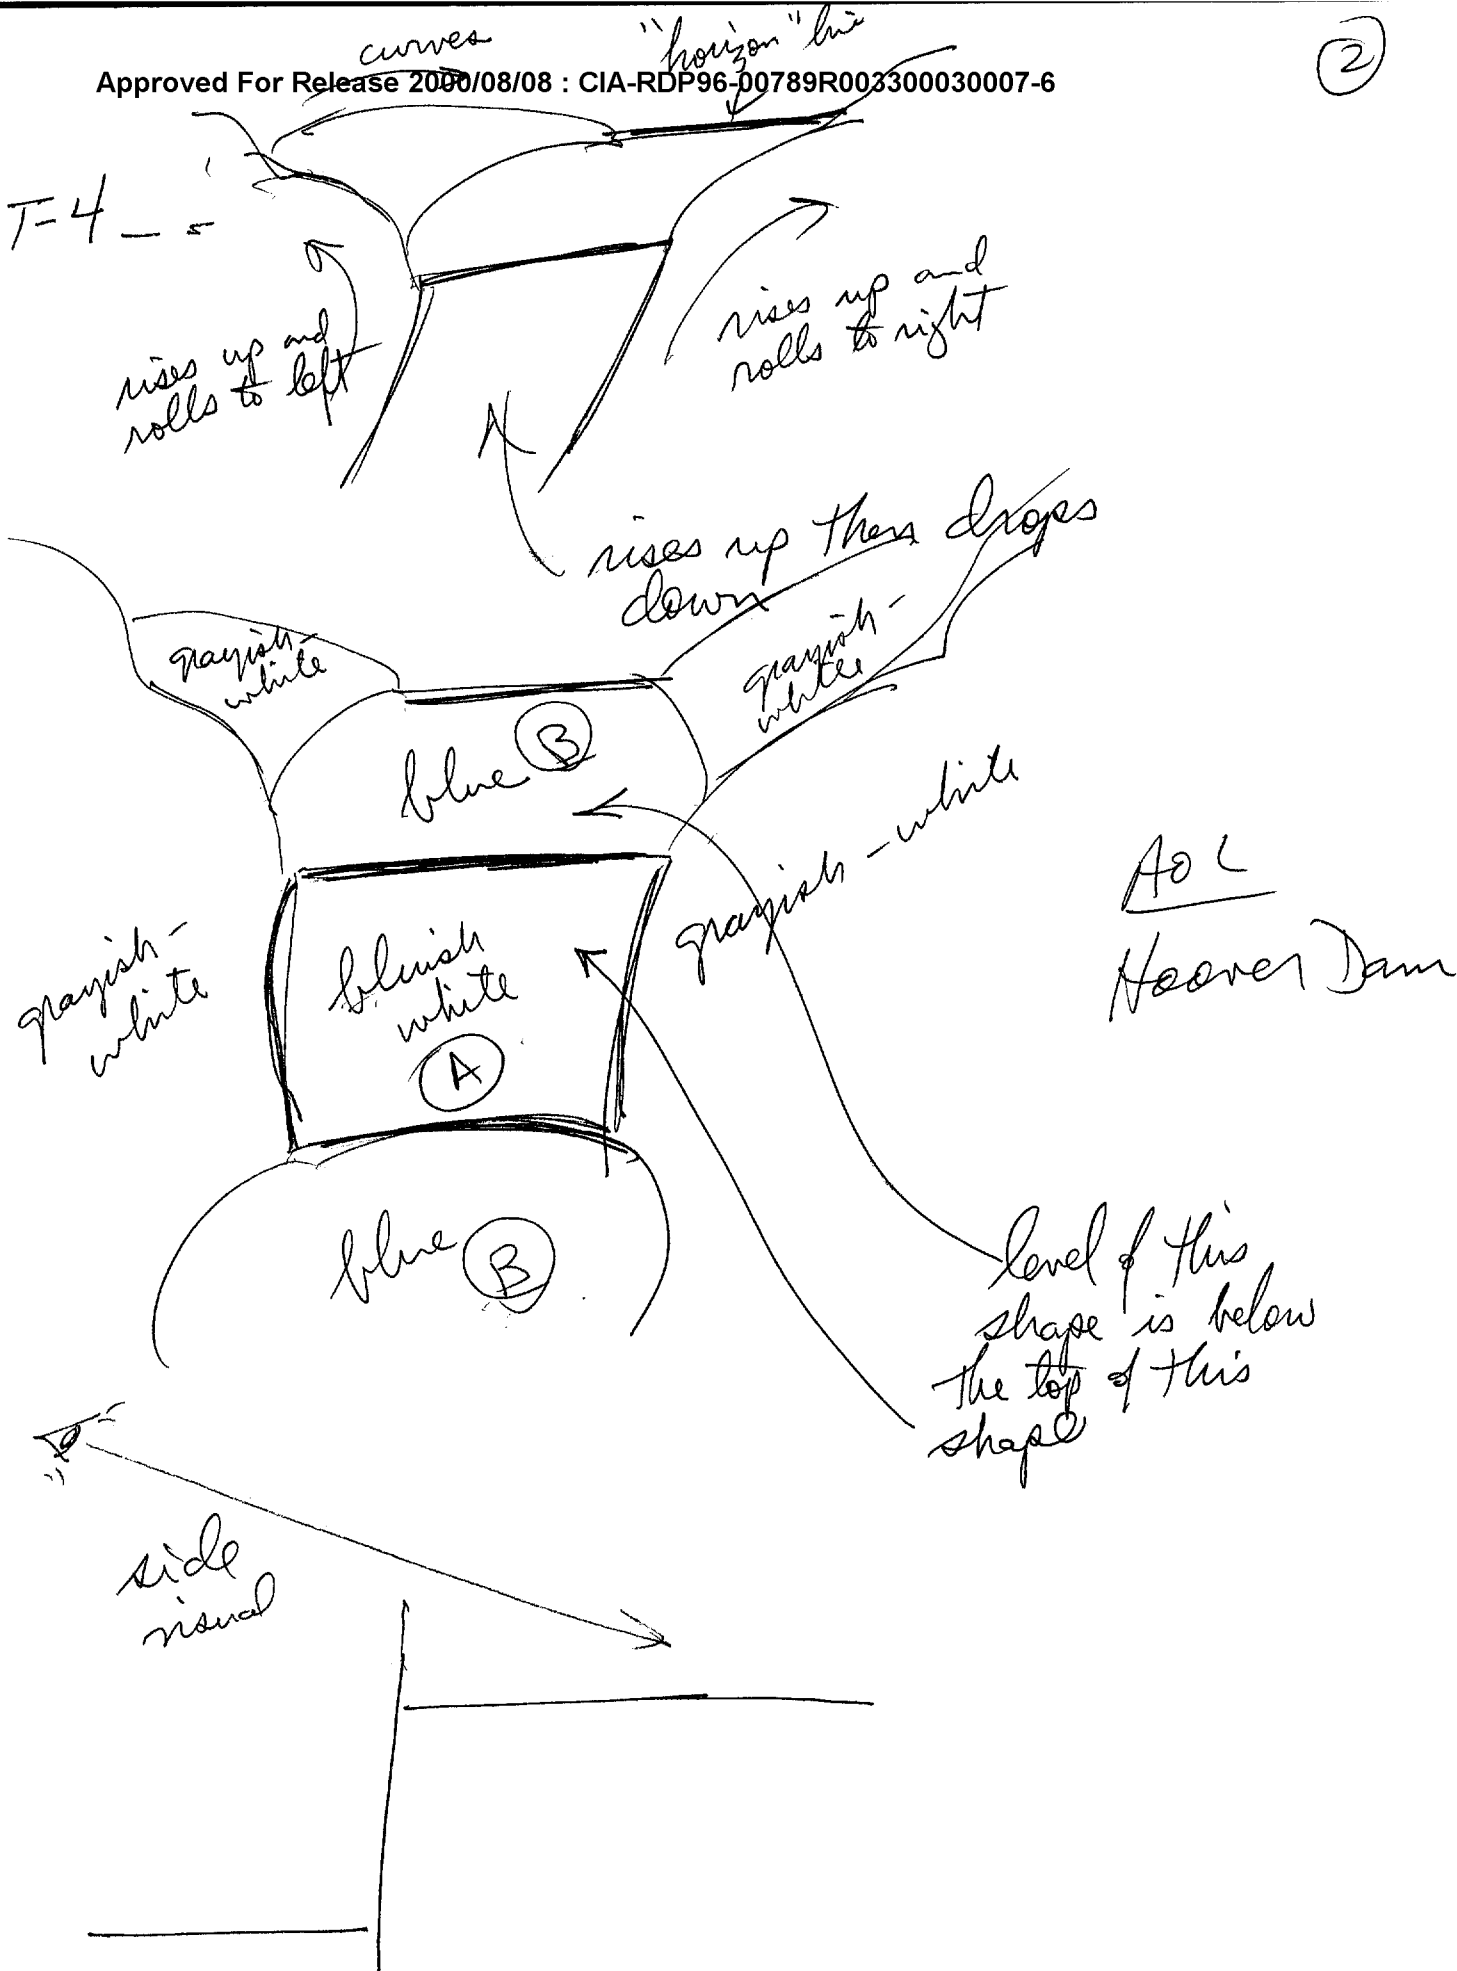 curves
"horizon" line
2
Approved For Release 2000/08/08 : CIA-RDP96-00789R003300030007-6
T=4
rises up and
rolls to left
rises up and
rolls to right
rises up then drops
down
grayish-
white
grayish-
white
blue B
grayish-white
grayish-
white
bluish
white
A
AOL
Hoover Dam
blue B
level of this
shape is below
the top of this
shape
side
visual